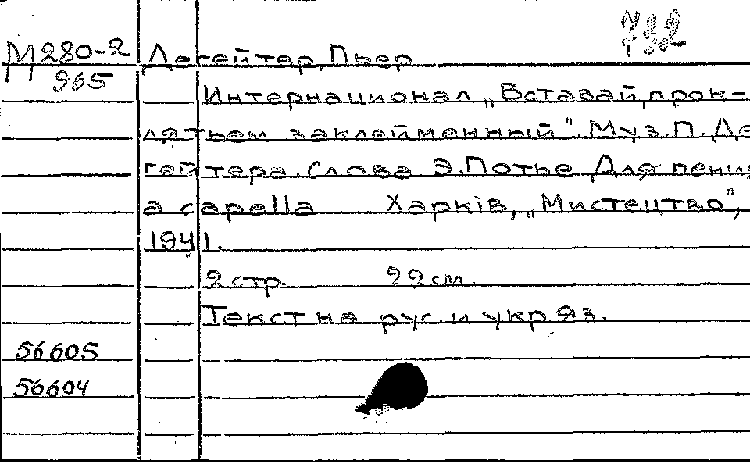 М280-2 Дегейтер, Пьер 792
965
Интернационал „Вставай, прок-
лятьем заклейменный". Муз. П. Де-
гейтера. Слова Э. Потье. Для пения
a capella Харкiв, „Мистецтво",
1941.
2 стр. 22 cm.
Текст на рус. и укр яз.
56605
56604